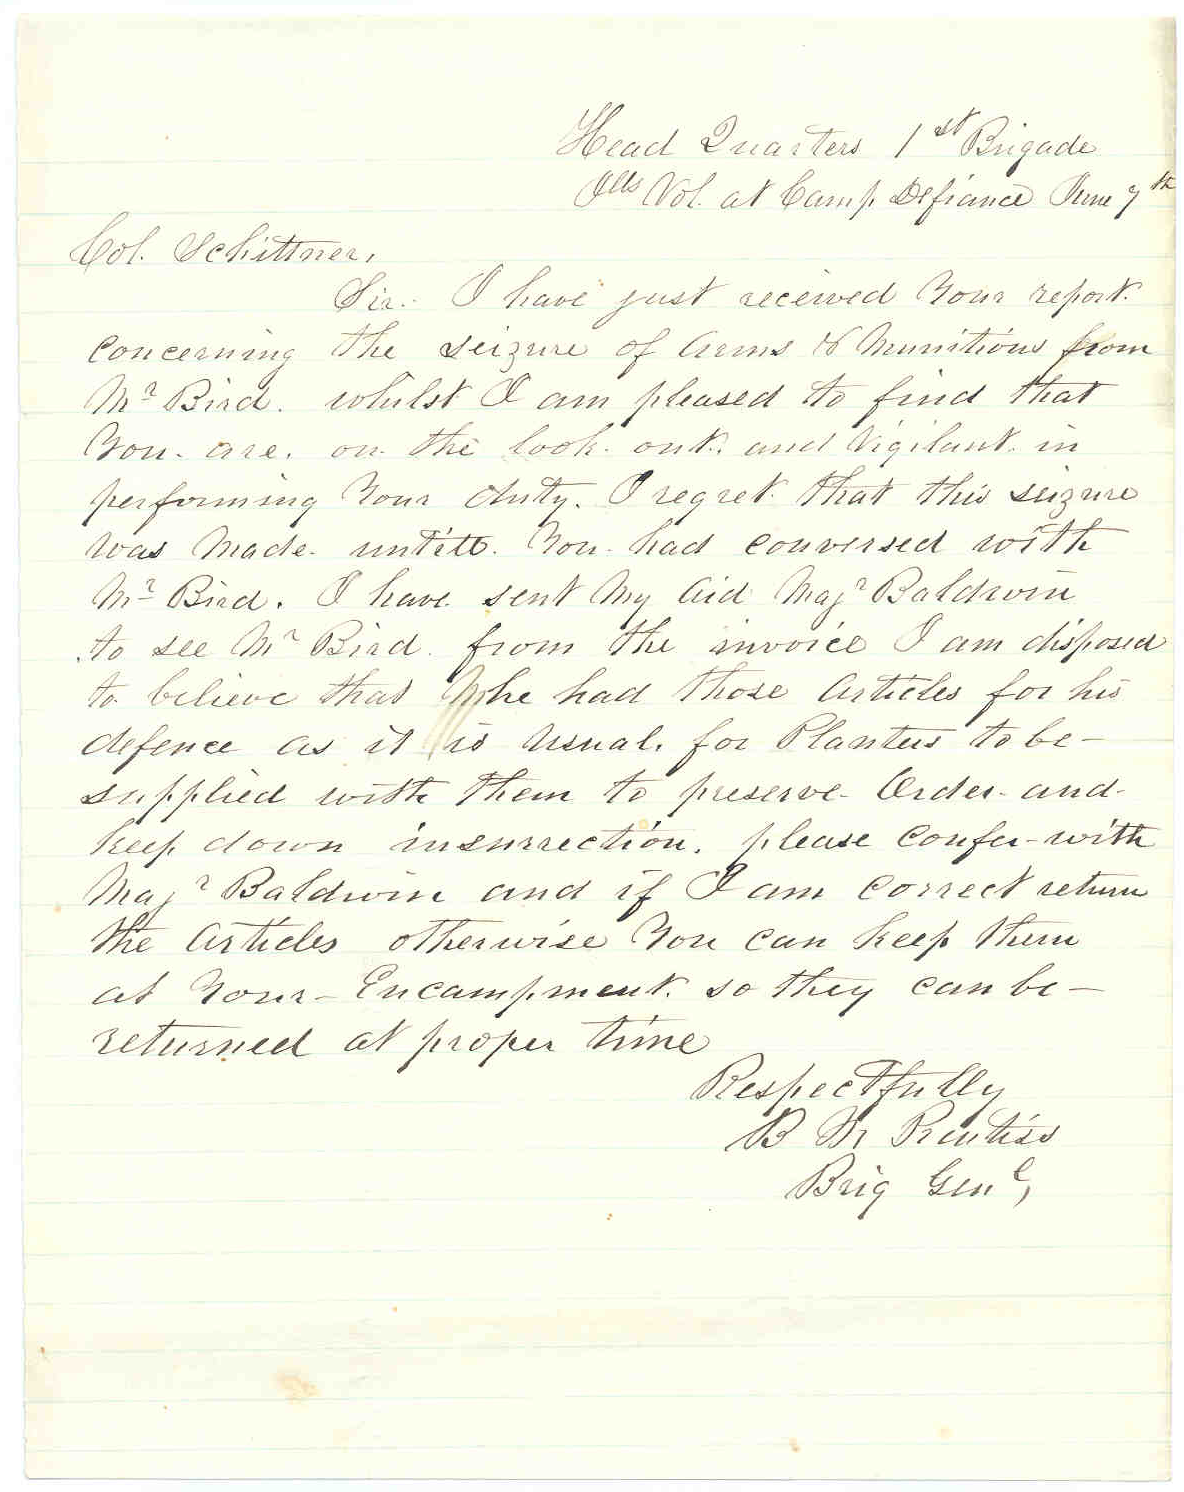 Head Quarters 1st Brigade
Ills Vol. at Camp Defiance June 7th
Col. Schittner,
Sir. I have just received Your report.
concerning the seizure of Arms & Munitions from
Mr Bird. whilst I am pleased to find that
You. are. on. the look. out. and Vigilant. in
performing Your duty. I regret. that this seizure
was Made. untill. You. had conversed with
Mr Bird. I have. sent My Aid Majr Baldwin
to see Mr Bird. from the invoice I am disposed
to believe that he had those Articles for his
defence as it is usual. for Planters to be-
supplied with them to preserve- Order- and-
keep down insurrection. please confer-with
Majr Baldwin and if I am correct return
the Articles otherwise You can keep them
at Your- Encampment. so they can be-
returned at proper time
Respectfully
B M Prentiss
Brig Genl,